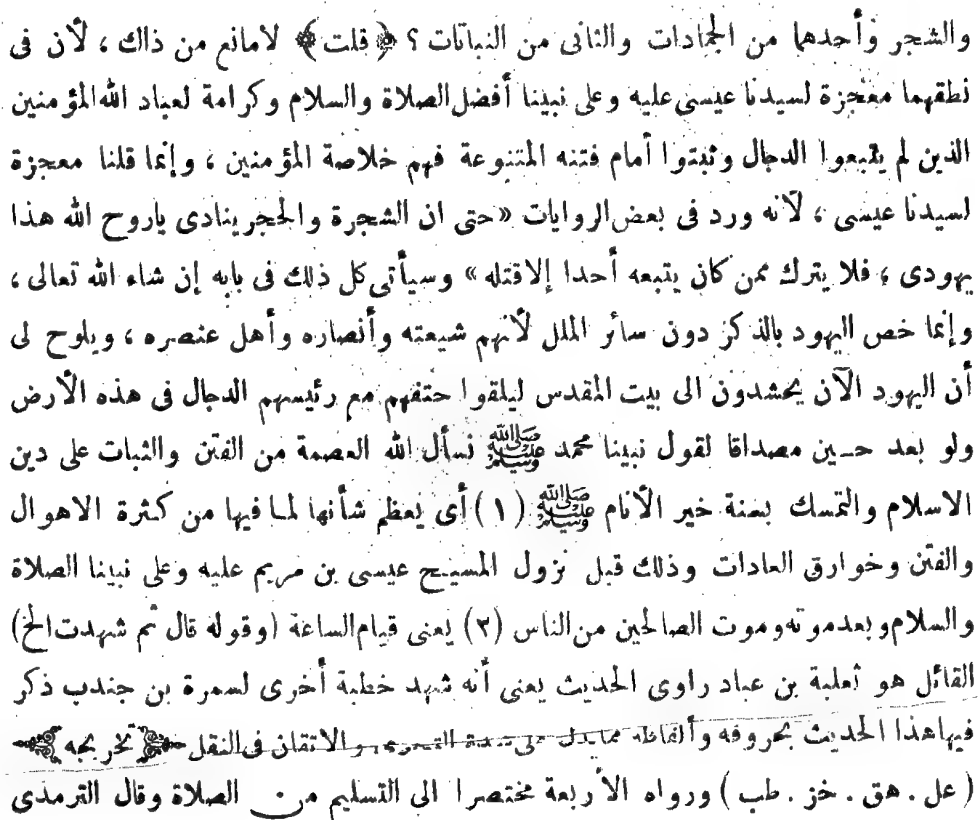 والشجر وأحدهما من الجمادات والثانى من النباتات ؟ ﴿ قلت ﴾ لامانع من ذاك ، لأن فى
نطقهما معجزة لسيدنا عيسى عليه وعلى نبينا أفضل الصلاة والسلام وكرامة لعباد الله المؤمنين
الذين لم يتبعوا الدجال وثبتوا أمام فتنه المتنوعة فهم خلاصة المؤمنين ، وإنما قلنا معجزة
لسيدنا عيسى ، لأنه ورد فى بعض الروايات «حتى ان الشجرة والحجر ينادى ياروح الله هذا
يهودى ، فلا يترك ممن كان يتبعه أحدا إلا قتله» وسيأتى كل ذلك فى بابه إن شاء الله تعالى ،
وإنما خص اليهود بالذكر دون سائر الملل لأنهم شيعته وأنصاره وأهل عنصره ، ويلوح لى
أن اليهود الآن يحشدون الى بيت المقدس ليلقوا حتفهم مع رئيسهم الدجال فى هذه الأرض
ولو بعد حين مصداقا لقول نبينا محمد ﷺ نسأل الله العصمة من الفتن والثبات على دين
الاسلام والتمسك بسنة خير الأنام ﷺ (١) أى يعظم شأنها لما فيها من كثرة الاهوال
والفتن وخوارق العادات وذلك قبل نزول المسيح عيسى بن مريم عليه وعلى نبينا الصلاة
والسلام وبعد موته وموت الصالحين من الناس (٣) يعنى قيام الساعة (وقوله قال ثم شهدت الخ)
القائل هو ثعلبة بن عباد راوى الحديث يعنى أنه شهد خطبة أخرى لسمرة بن جندب ذكر
فيها هذا الحديث بحروفه وألفاظه مما يدل على شدة التحرى والاتقان فى النقل ﴿تخريجه﴾
(عل . هق . خز . طب) ورواه الأربعة مختصرا الى التسليم من الصلاة وقال الترمذى